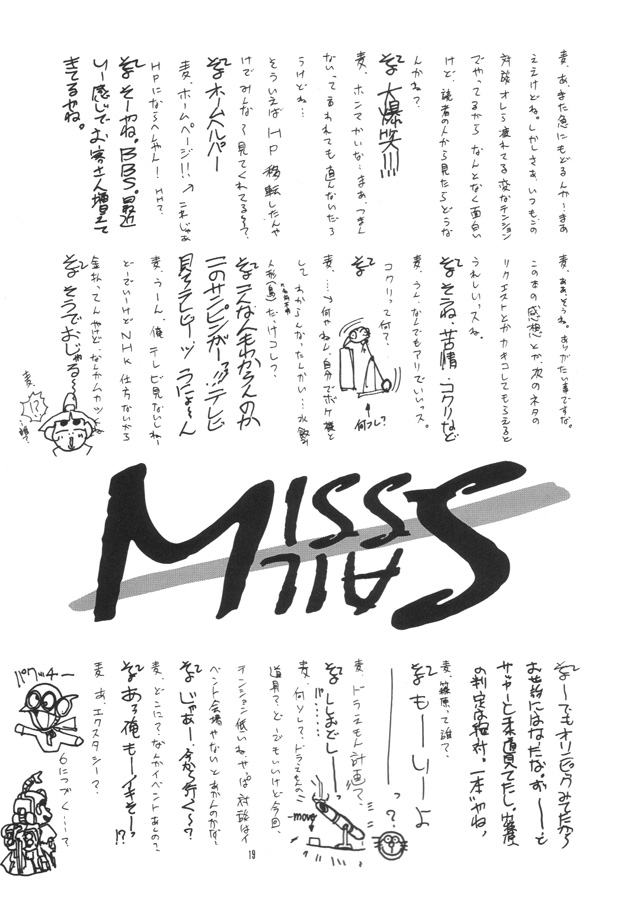 麦、あ、また急にもどるんかーまあ
ええけどね。しかしさあ、いつもこの
対談オレら疲れてる変なテンション
でやってるから なんとなく面白い
けど、読者の人から見たらどうな
んかね?
そ 大爆笑!!!
麦、ホンマかいなーまあ、つまん
ないって言われても直んないだろ
うけどね…
そういえばHP移転したんや
けどみんな見てくれてるー?
そ ホームヘルパー
麦、ホームページ!!
HPにならへんやん! HH?
そ そーやね。BBS。最近
いー感じでお客さん増えて
きてるやね。
麦、ああ、そうね。ありがたい事ですな。
この本の感想とか、次のネタの
リクエストとかカキコしてもらえると
うれしいッスね。
そ そうね、苦情・コクリなど
麦、うん、なんでもアリでいいっス。
コクリって何?
そ
何コレ?
してわからんなったんかい…水飲み
人形(鳥)だけコレ?
そ こんな人もわからんのか
このサンピンがー!!!テレビ
見ろテレビーッ うにょ〜ん
麦、うーん、俺テレビ見ないしねー
どーでいいけどNHK仕方ないから
金払ってんやけど、なんかムカッとよね
そ そうでおじゃる〜
麦、
!?
MISS
SAIL
お芝にはなだな。お〜〜と
サッカーと柔道見てたし。
の判定は絶対。一本やね。
麦、篠原って誰?
そ もーーしーーよ
ーーーーっ?
麦、ドラえもん計画?
そ しまおどしー
!!
麦、何ソレ?ドラえもんの
道具?どーでもいいけど今回、
テンション低いねやっぱ対談はイ
ベント会場やないとあかんのかな?
そ じゃあー今から行くー?
麦、どこに?なんかイベントあんの?
そ ある俺もーイキそーっ!?
麦 あ エクスタシー?
6につづく…?
パクッチー
-move
19